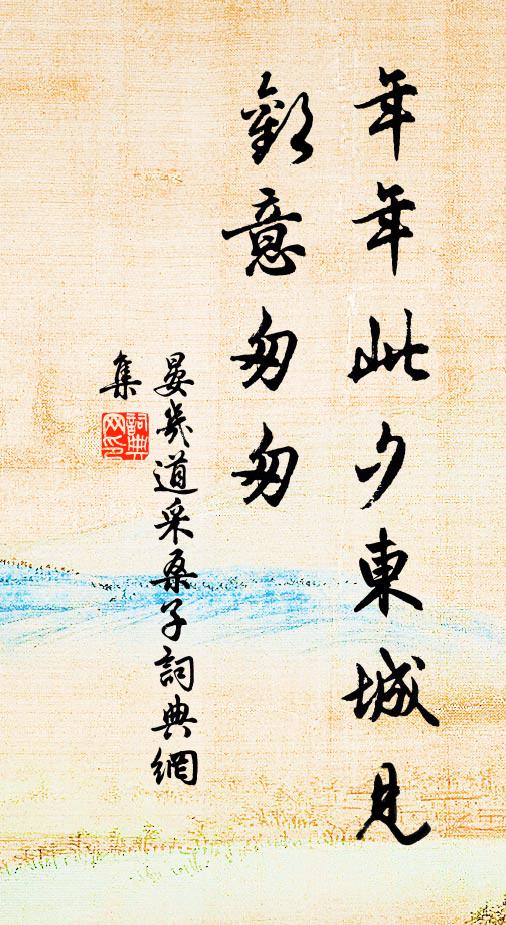 年年此夕東城見
歡意匆匆
晏幾道采桑子詞典網
集
詞典
网印